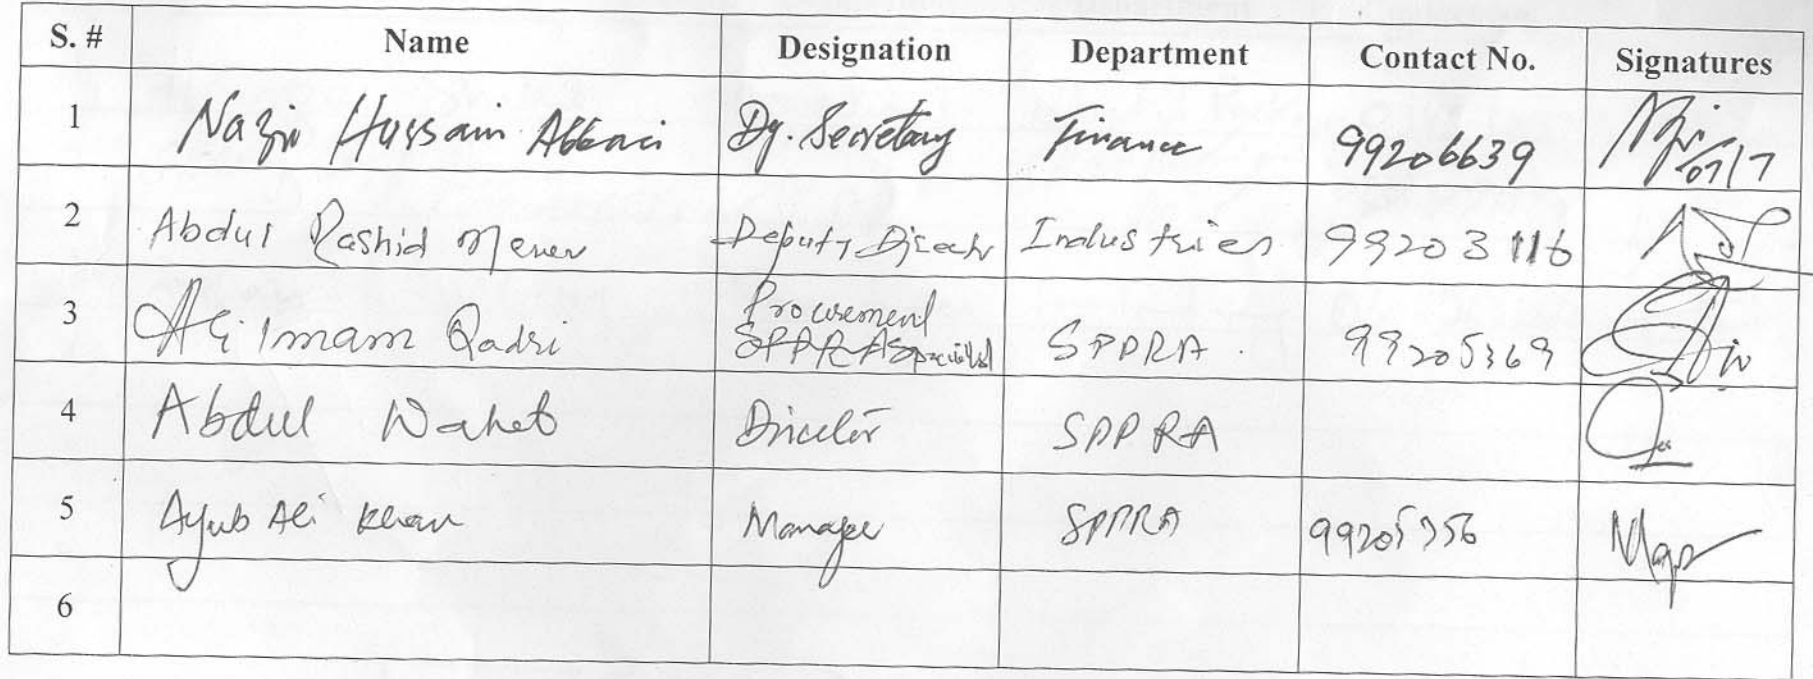 S. # Name Designation Department Contact No. Signatures
1 Nazir Hussain Abbasi Dy. Secretary Finance 99206639 07/7
2 Abdul Rashid Deputy Director Industries 99203116
3 Ali Imam Qadri Procurement SPPRA Specialist SPPRA 99205369
4 Abdul Wahab Director SPPRA
5 Ayub Ali Khan Manager SPPRA 99205356
6